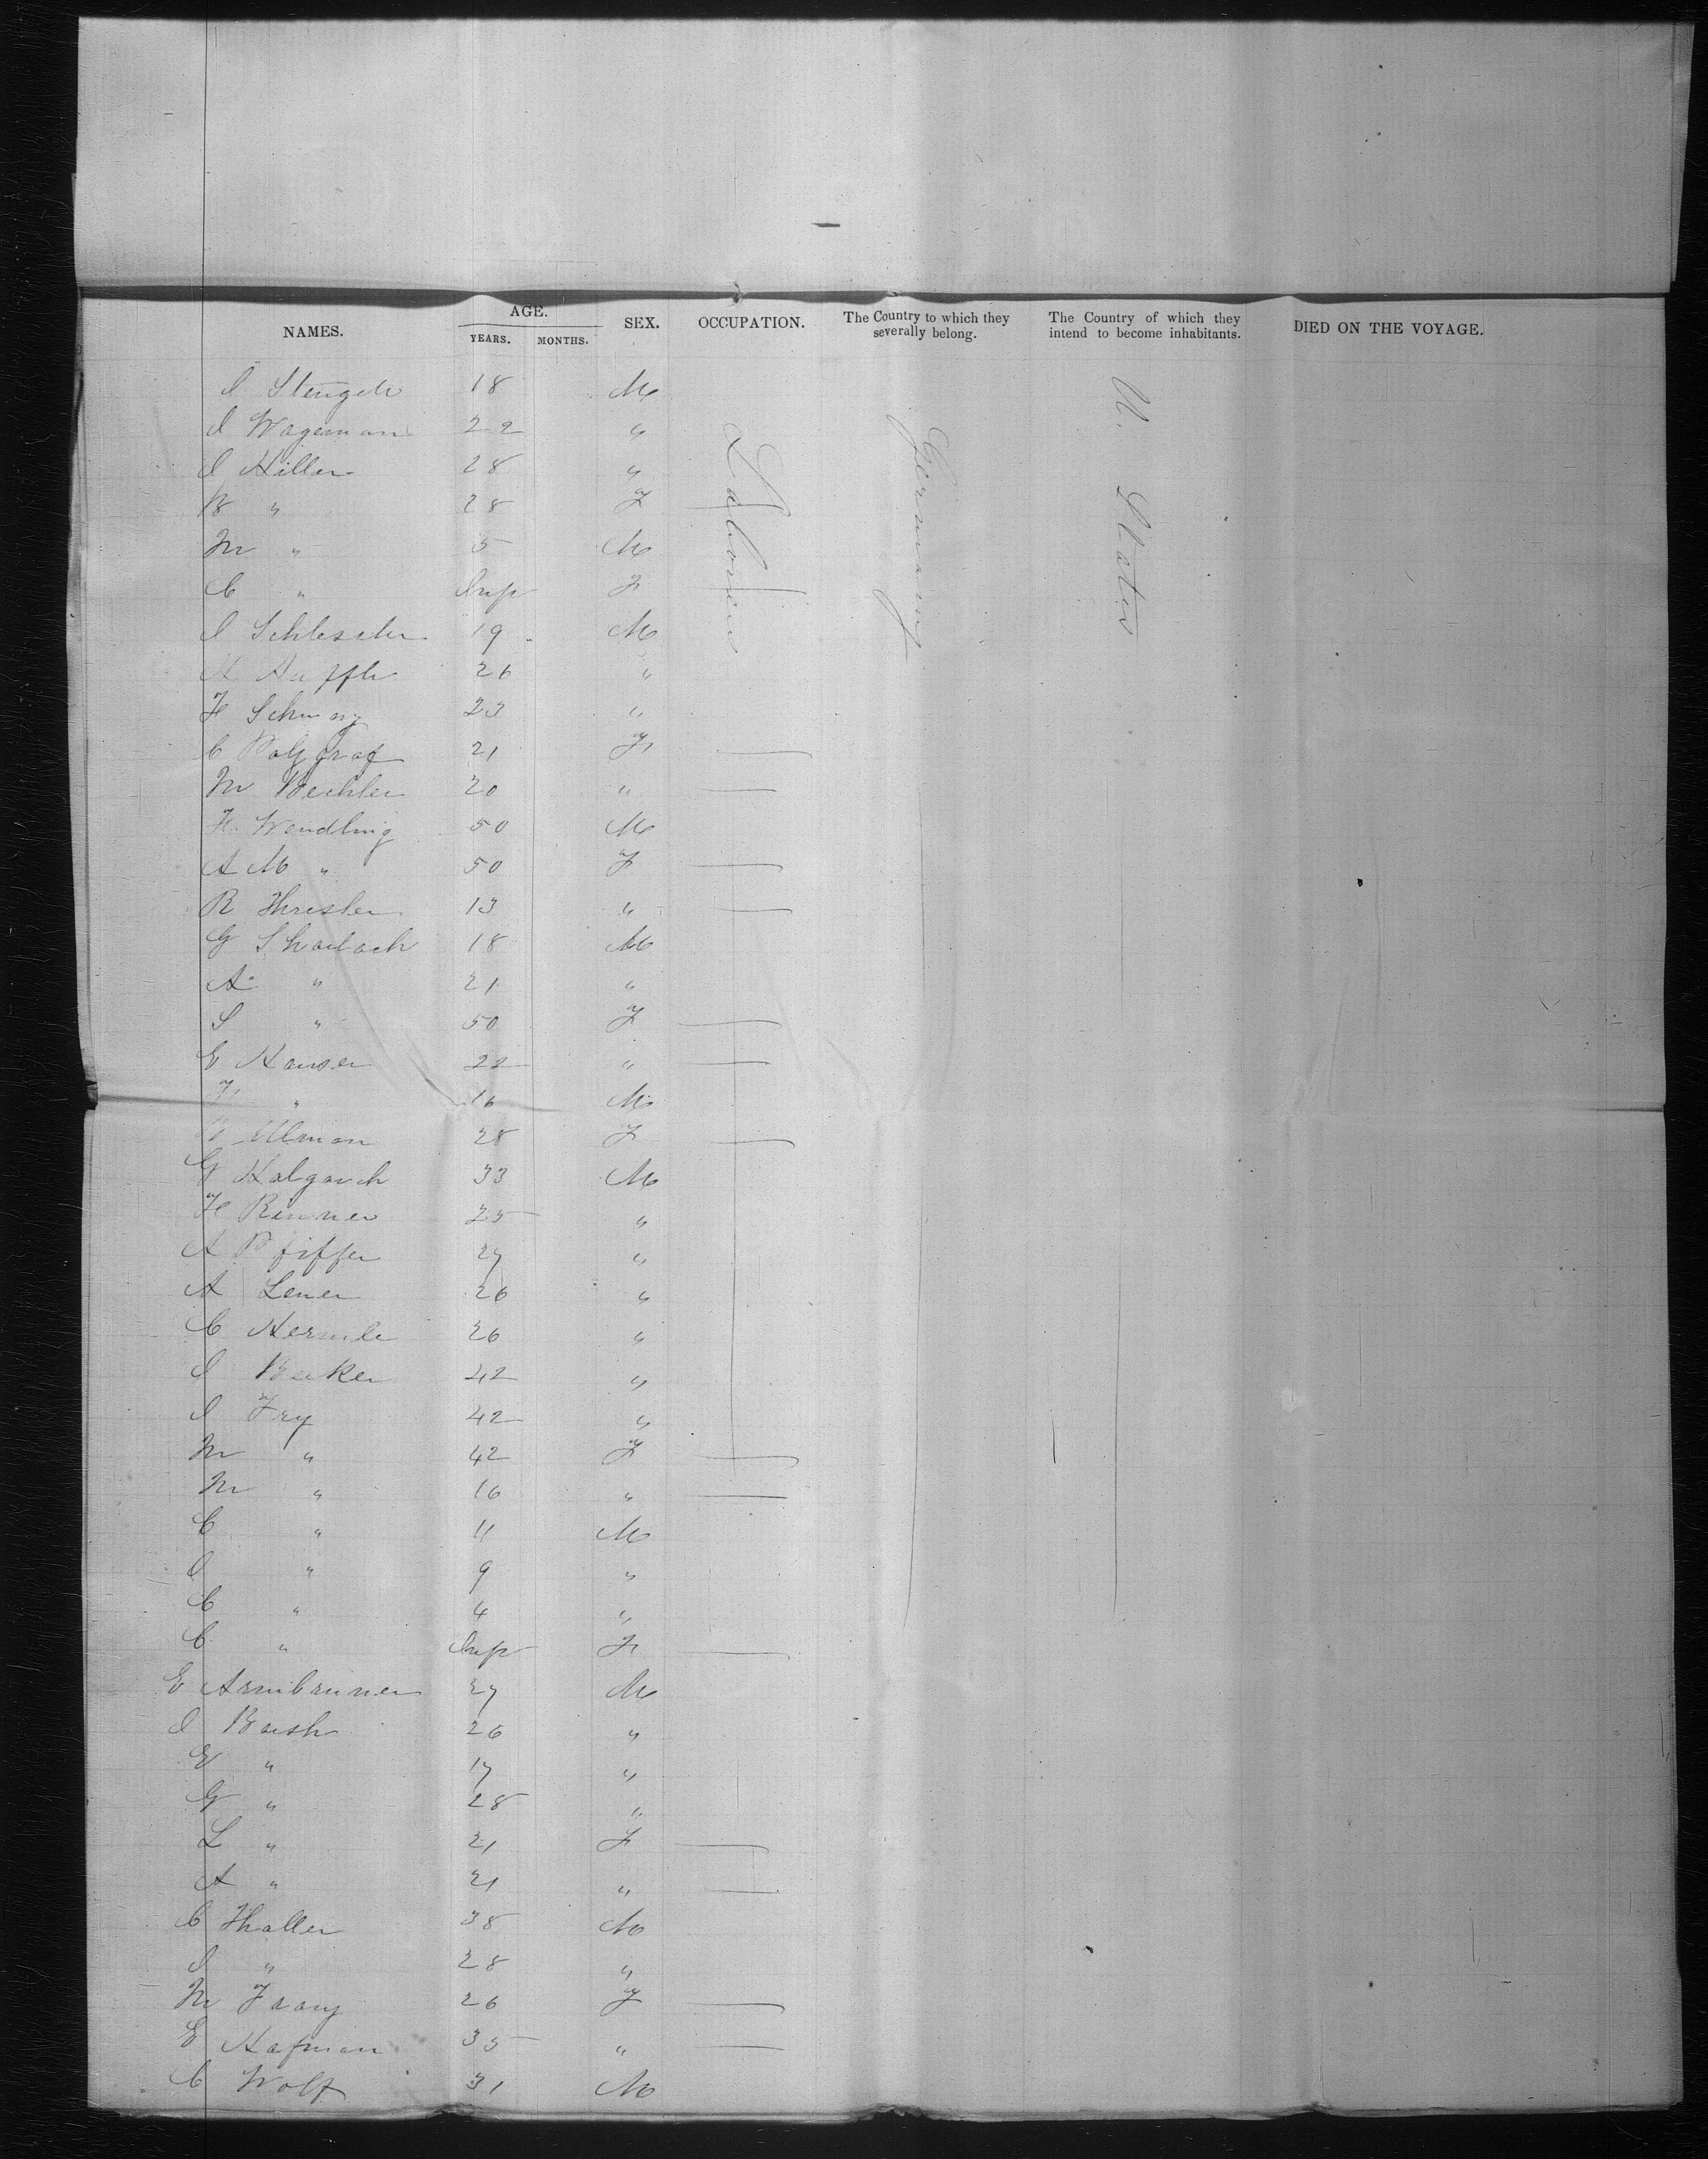 NAMES. AGE. YEARS. MONTHS. SEX. OCCUPATION. The Country to which they severally belong. The Country of which they intend to become inhabitants. DIED ON THE VOYAGE.
Laborer Germany U. States
I Stengele 18 M
I Wageman 22 "
I Hiller 28 "
B " 28 F
M " 5 M
C " Inf F
I Schlessler 19 M
26 "
F 23 "
C 21 F
M Bechler 20 "
F. Wendling 50 M
A M " 50 F
R Thresler 13 "
G Sharbach 18 M
A " 21 "
S " 50 F
E Hauser 22 "
F " 16 M
Ulman 28 F
G 33 M
F Renner 25 "
A Pfiffer 27 "
A Lener 26 "
C Hermle 26 "
I Becker 42 "
I Fry 42 "
M " 42 F
M " 16 "
C " 11 M
I " 9 "
C " 4 "
C " Inf F
E Armbruner 27 M
I Baish 26 "
E " 17 "
G " 28 "
L " 21 F
A " 21 "
C Thaller 38 M
I " 28 "
M Franz 26 F
E Hafman 35 "
C Wolf 31 M